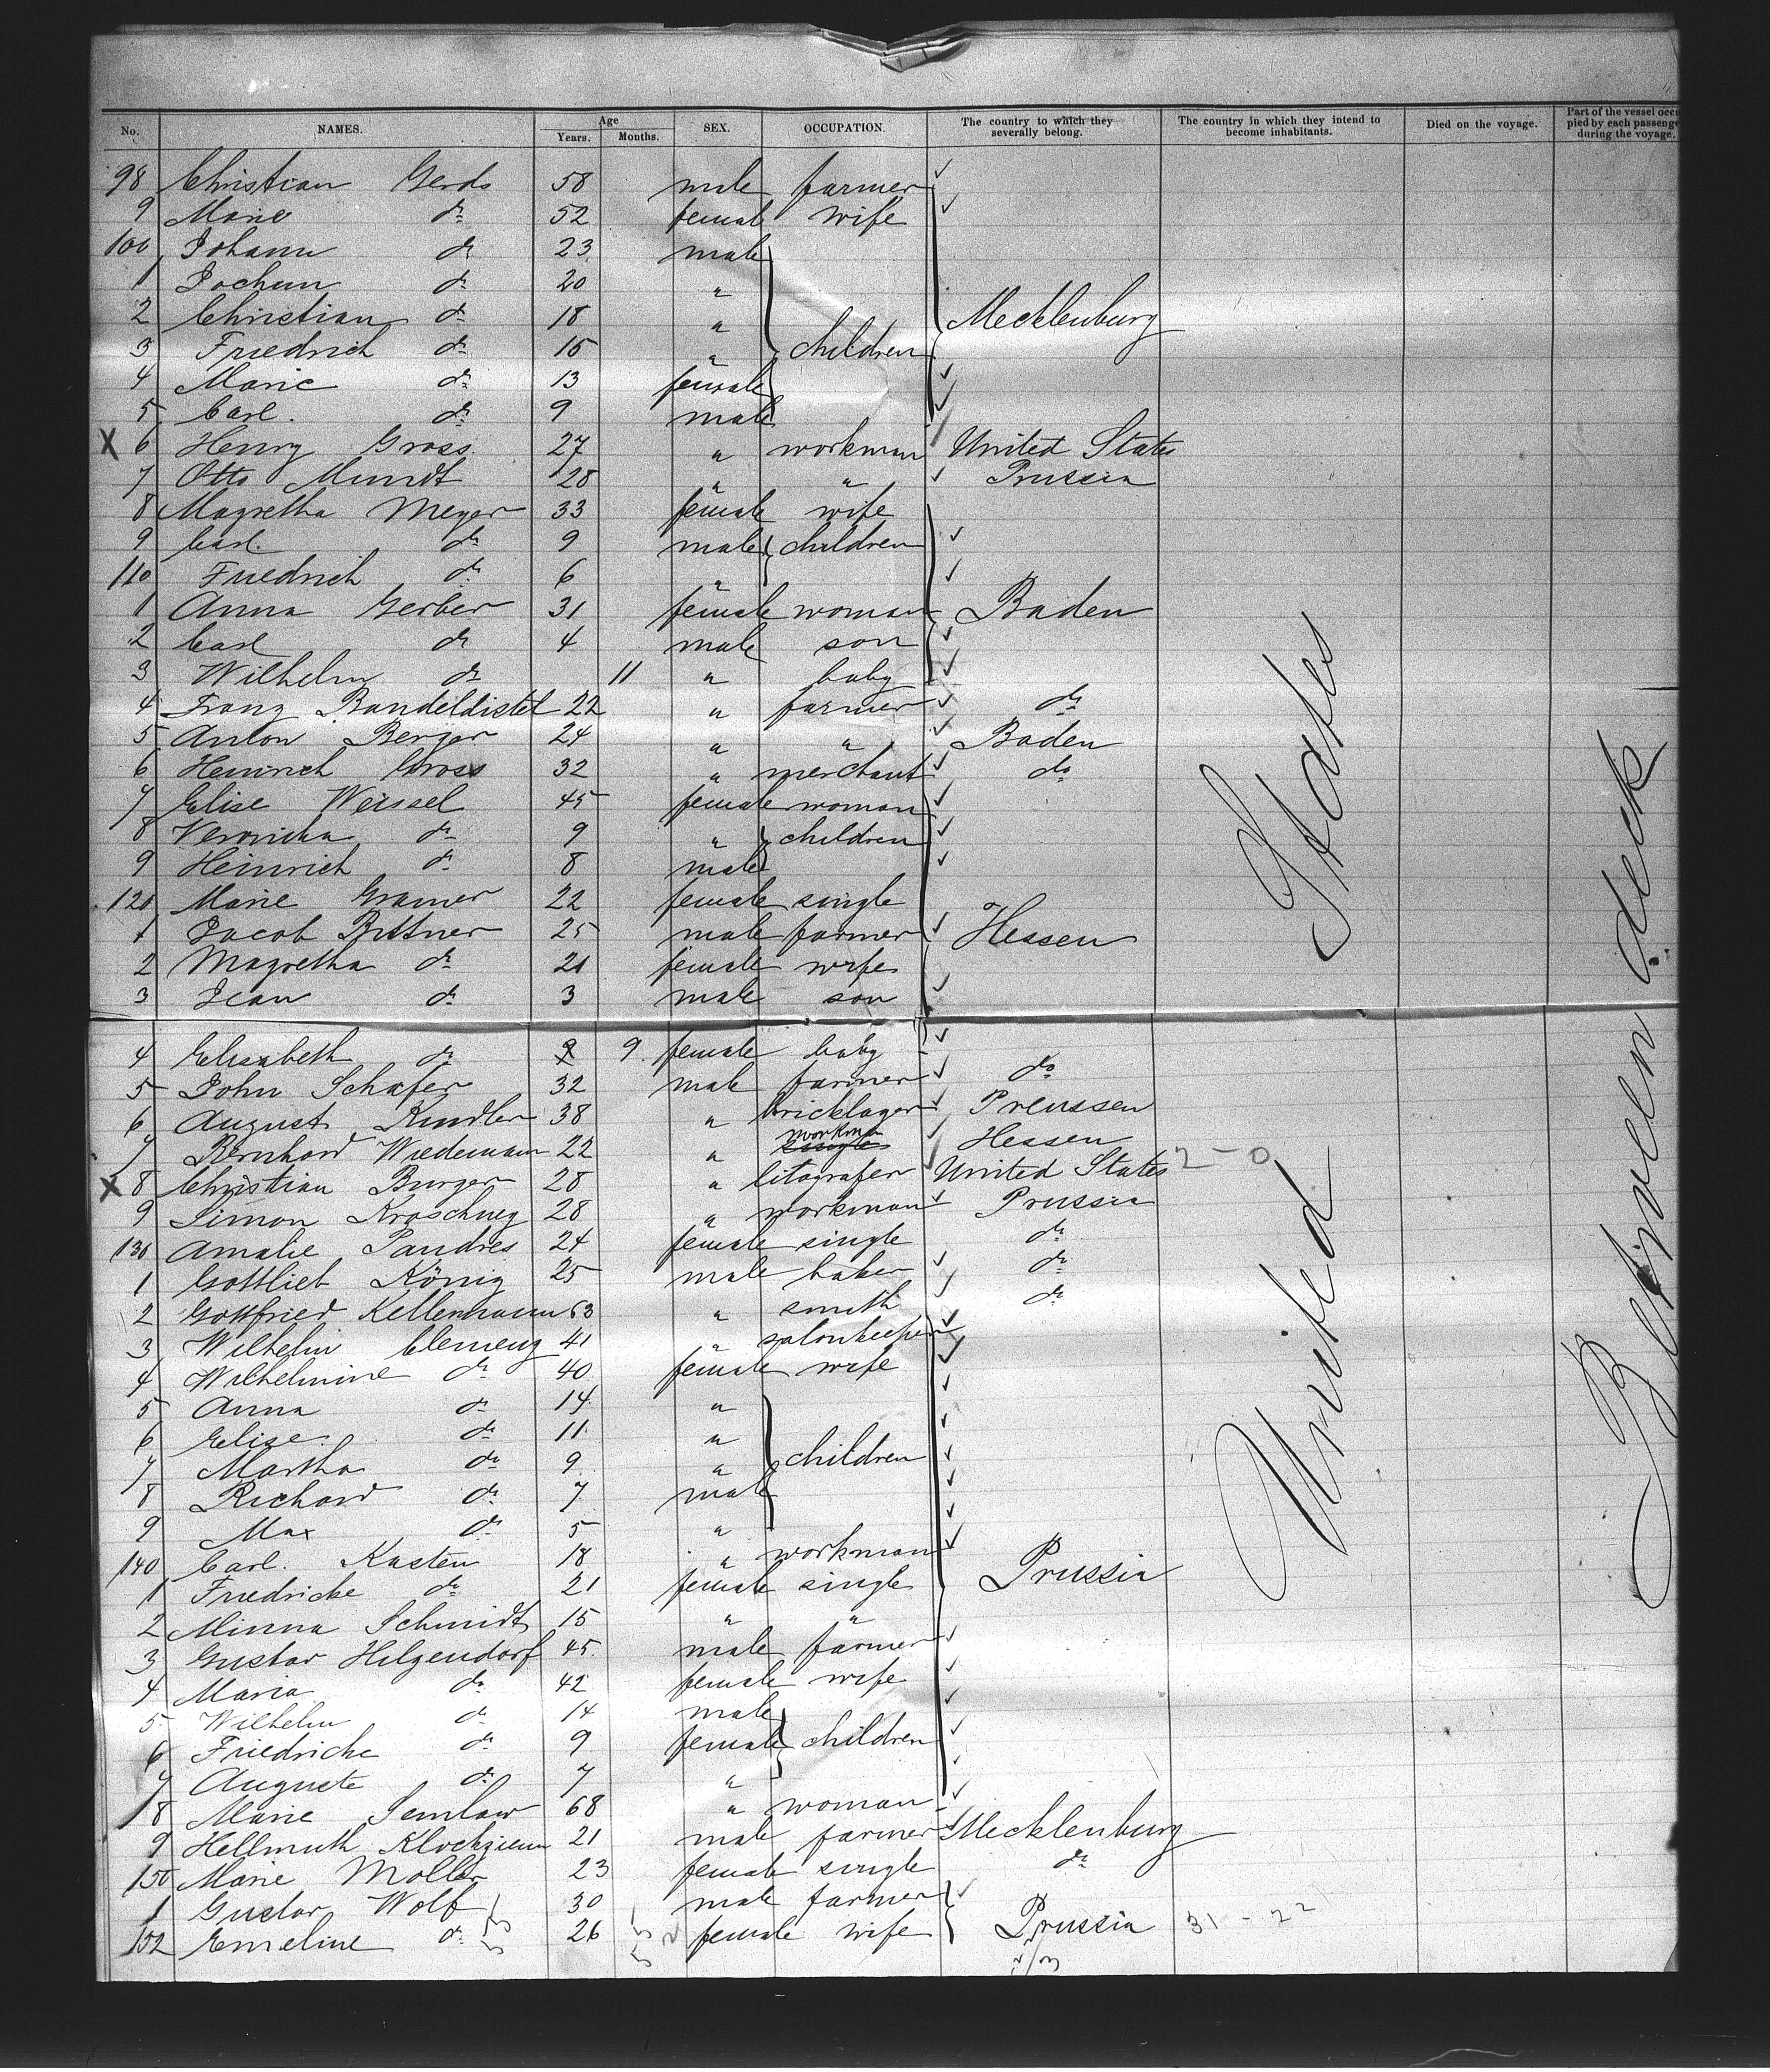 No. NAMES. Age Years. Months. SEX. OCCUPATION. The country to which they severally belong. The country in which they intend to become inhabitants. Died on the voyage. Part of the vessel occupied by each passenger during the voyage.
98 Christian Gerds 58 male farmer
9 Marie do 52 female wife
100 Johann do 23 male
1 Jochem do 20 "
2 Christian do 18 " Mecklenburg
3 Friedrich do 15 " children
4 Marie do 13 female
5 Carl. do 9 male
X 6 Henry Gross 27 " workman United States
7 Otto Mundt 28 " " Prussia
8 Magretha Meyer 33 female wife
9 Carl. do 9 male children
110 Friedrich do 6 "
1 Anna Gerber 31 female woman Baden
2 Carl do 4 male son
3 Wilhelm do 11 " baby
4 Franz 22 " farmer do
5 Anton Berger 24 " " Baden
6 Heinrich Gross 32 " merchant do
7 Elise Weissel 45 female woman
8 Veronicka do 9 " children
9 Heinrich do 8 male
120 Marie Gramer 22 female single
1 Jacob Bittner 25 male farmer Hessen
2 Magretha do 21 female wife
3 Jean do 3 male son
4 Elisabeth do 9 female baby
5 John Schafer 32 male farmer do
6 August Kindler 38 " bricklager Preussen
7 Bernhard Wiedemann 22 " workman Hessen
X 8 Christian Burger 28 " litografer United States 2-0
9 Simon 28 " workman Prussia
130 Amalie Pandres 24 female single do
1 Gottlieb König 25 male baker do
2 Gottfried Kellermann 63 " smith do
3 Wilhelm Clemenz 41 " salonkeeper
4 Wilhelmine do 40 female wife
5 Anna do 14 "
6 Elise do 11 "
7 Martha do 9 " children
8 Richard do 7 male
9 Max do 5 "
140 Carl. Kasten 18 " workman Prussia
1 Friedricke do 21 female single
2 Minna Schmidt 15 " "
3 Gustav Hilgendorf 45 male farmer
4 Maria do 42 female wife
5 Wilhelm do 14 male
6 Friedricke do 9 female children
7 Auguste do 7 "
8 Marie 68 " woman
9 Hellmuth 21 male farmer Mecklenburg
150 Marie Moller 23 female single do
1 Gustav Wolf 30 male farmer
152 Emeline do 26 female wife Prussia 31-22
United States
Between deck